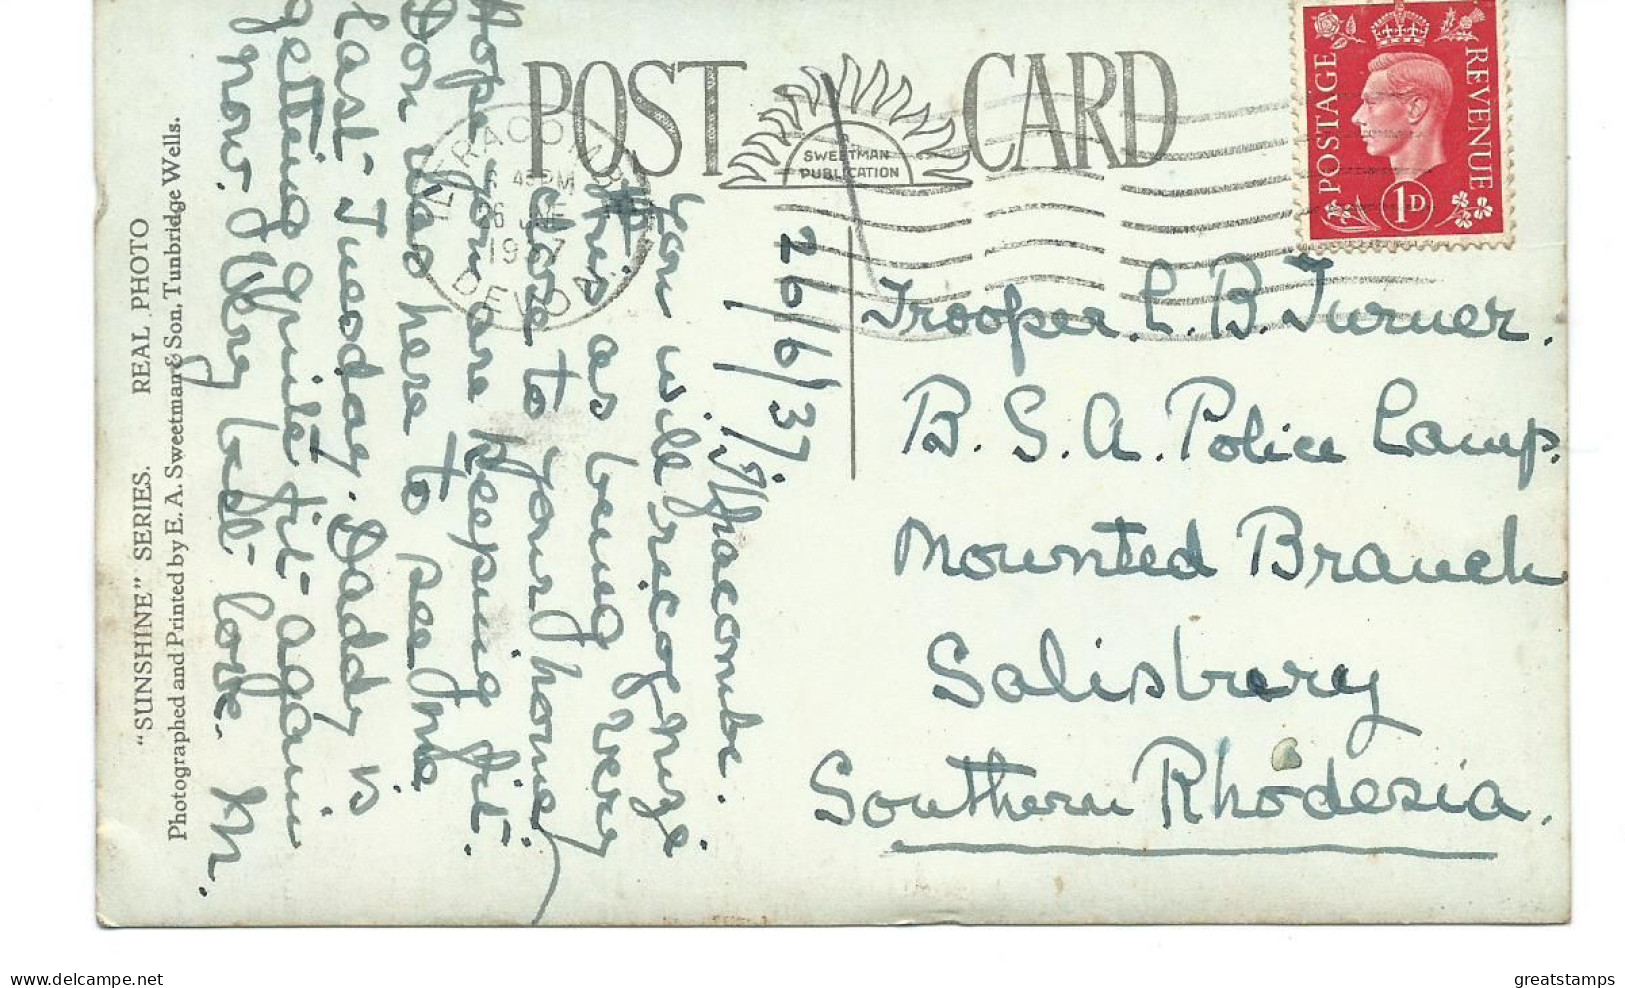 POST CARD
SWEETMAN
PUBLICATION
POSTAGE
REVENUE
1D
ILFRACOMBE
6 45 PM
26 JNE
1937
DEVON
"SUNSHINE" SERIES. REAL PHOTO
Photographed and Printed by E. A. Sweetman & Son, Tunbridge Wells.
Ilfracombe.
26/6/37.
You will recognize
this as being very
close to your home
Hope you are keeping fit.
Don was here to see me
last Tuesday. Daddy is
getting quite fit again
now. Very best love. M.
Trooper. C. B. Turner.
B. S. A. Police Camp.
Mounted Branch
Salisbury
Southern Rhodesia.
greatstamps